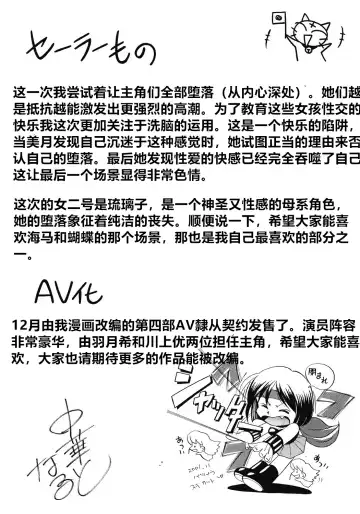 セーラーもの
这一次我尝试着让主角们全部堕落（从内心深处）。她们越
是抵抗越能激发出更强烈的高潮。为了教育这些女孩性交的
快乐我这次更加关注于洗脑的运用。这是一个快乐的陷阱，
当美月发现自己沉迷于这种感觉时，她试图正当的理由来否
认自己的堕落。最后她发现性爱的快感已经完全吞噬了自己
这让最后一个场景显得非常色情。
这次的女二号是琉璃子，是一个神圣又性感的母系角色，
她的堕落象征着纯洁的丧失。顺便说一下，希望大家能喜
欢海马和蝴蝶的那个场景，那也是我自己最喜欢的部分之
一。
AV化
12月由我漫画改编的第四部AV隷从契约发售了。演员阵容
非常豪华，由羽月希和川上优两位担任主角，希望大家能喜
欢，大家也请期待更多的作品能被改编。
中華
なると